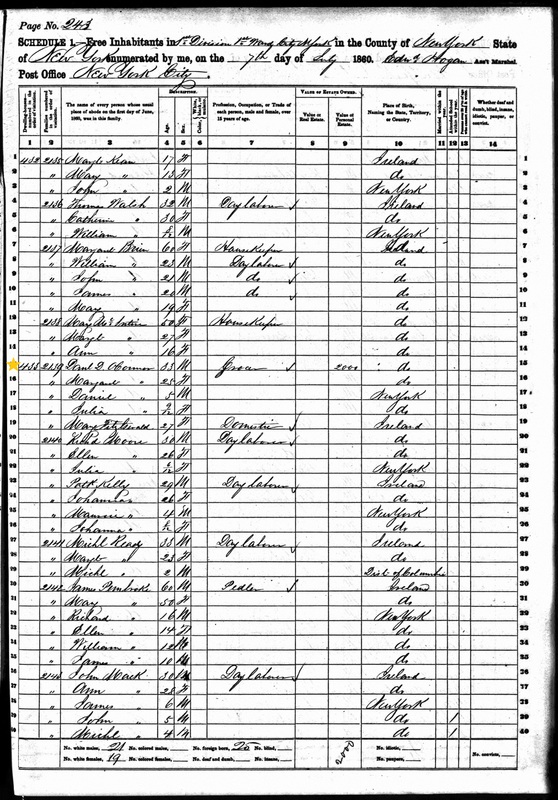 Page No. 243
SCHEDULE 1.—Free Inhabitants in 1st Division 1st Ward City N York in the County of New York State
of New York enumerated by me, on the 7th day of July 1860. Hogan Ass't Marshal.
Post Office New York City
DESCRIPTION. VALUE OF ESTATE OWNED.
Dwelling-houses—numbered in the order of visitation. Families numbered in the order of visitation. The name of every person whose usual place of abode on the first day of June, 1860, was in this family. Age. Sex. Color. Profession, Occupation, or Trade of each person, male and female, over 15 years of age. Value of Real Estate. Value of Personal Estate. Place of Birth, Naming the State, Territory, or Country. Married within the year. Attended School within the year. Whether deaf and dumb, blind, insane, idiotic, pauper, or convict.
1 2 3 4 5 6 7 8 9 10 11 12 13 14
1 432 2135 Kean 17 F Ireland 1
2 " " May " 13 F do 2
3 " " John " 2 M New York 3
4 " 2136 Thomas Walsh 32 M Day laborer Ireland 4
5 " " Catherine " 30 F do 5
6 " " William " M New York 6
7 " 2137 Margaret Brien 60 F House Keeper Ireland 7
8 " " William " 23 M Day laborer do 8
9 " " John " 21 M do do 9
10 " " James " 20 M do do 10
11 " " May " 19 F do 11
12 " 2138 May 50 F House Keeper do 12
13 " " Margt " 27 F do 13
14 " " Ann " 16 F do 14
15 433 2139 O'Connor 33 M Grocer 2000 do 15
16 " " Margaret " 25 F do 16
17 " " Daniel " 5 M New York 17
18 " " Julia " F do 18
19 " " Fitzgerald 27 F Domestic Ireland 19
20 " 2140 Moore 30 M Day laborer do 20
21 " " Ellen " 26 F do 21
22 " " Julia " F New York 22
23 " " Patk Kelly 29 M Day laborer Ireland 23
24 " " Johanna " 26 F do 24
25 " " Maurice " 4 M New York 25
26 " " Johanna " F do 26
27 " 2141 Michl Ready 35 M Day laborer Ireland 27
28 " " Margt " 23 F do 28
29 " " Michl " 2 M Dist of Columbia 29
30 " 2142 James Pembroke 60 M Pedler Ireland 30
31 " " May " 50 F do 31
32 " " Richard " 16 M New York 32
33 " " Ellen " 14 F do 33
34 " " William " 12 M do 34
35 " " James " 10 M do 35
36 " 2143 John Mack 30 M Day laborer Ireland 36
37 " " Ann " 28 F do 37
38 " " James " 6 M New York 38
39 " " John " 5 M do 1 39
40 " " Michl " 4 M do 1 40
No. white males, 21 No. colored males, No. foreign born, 25 No. blind, 2000 No. idiotic, No. convicts,
No. white females, 19 No. colored females, No. deaf and dumb, No. insane, No. paupers,